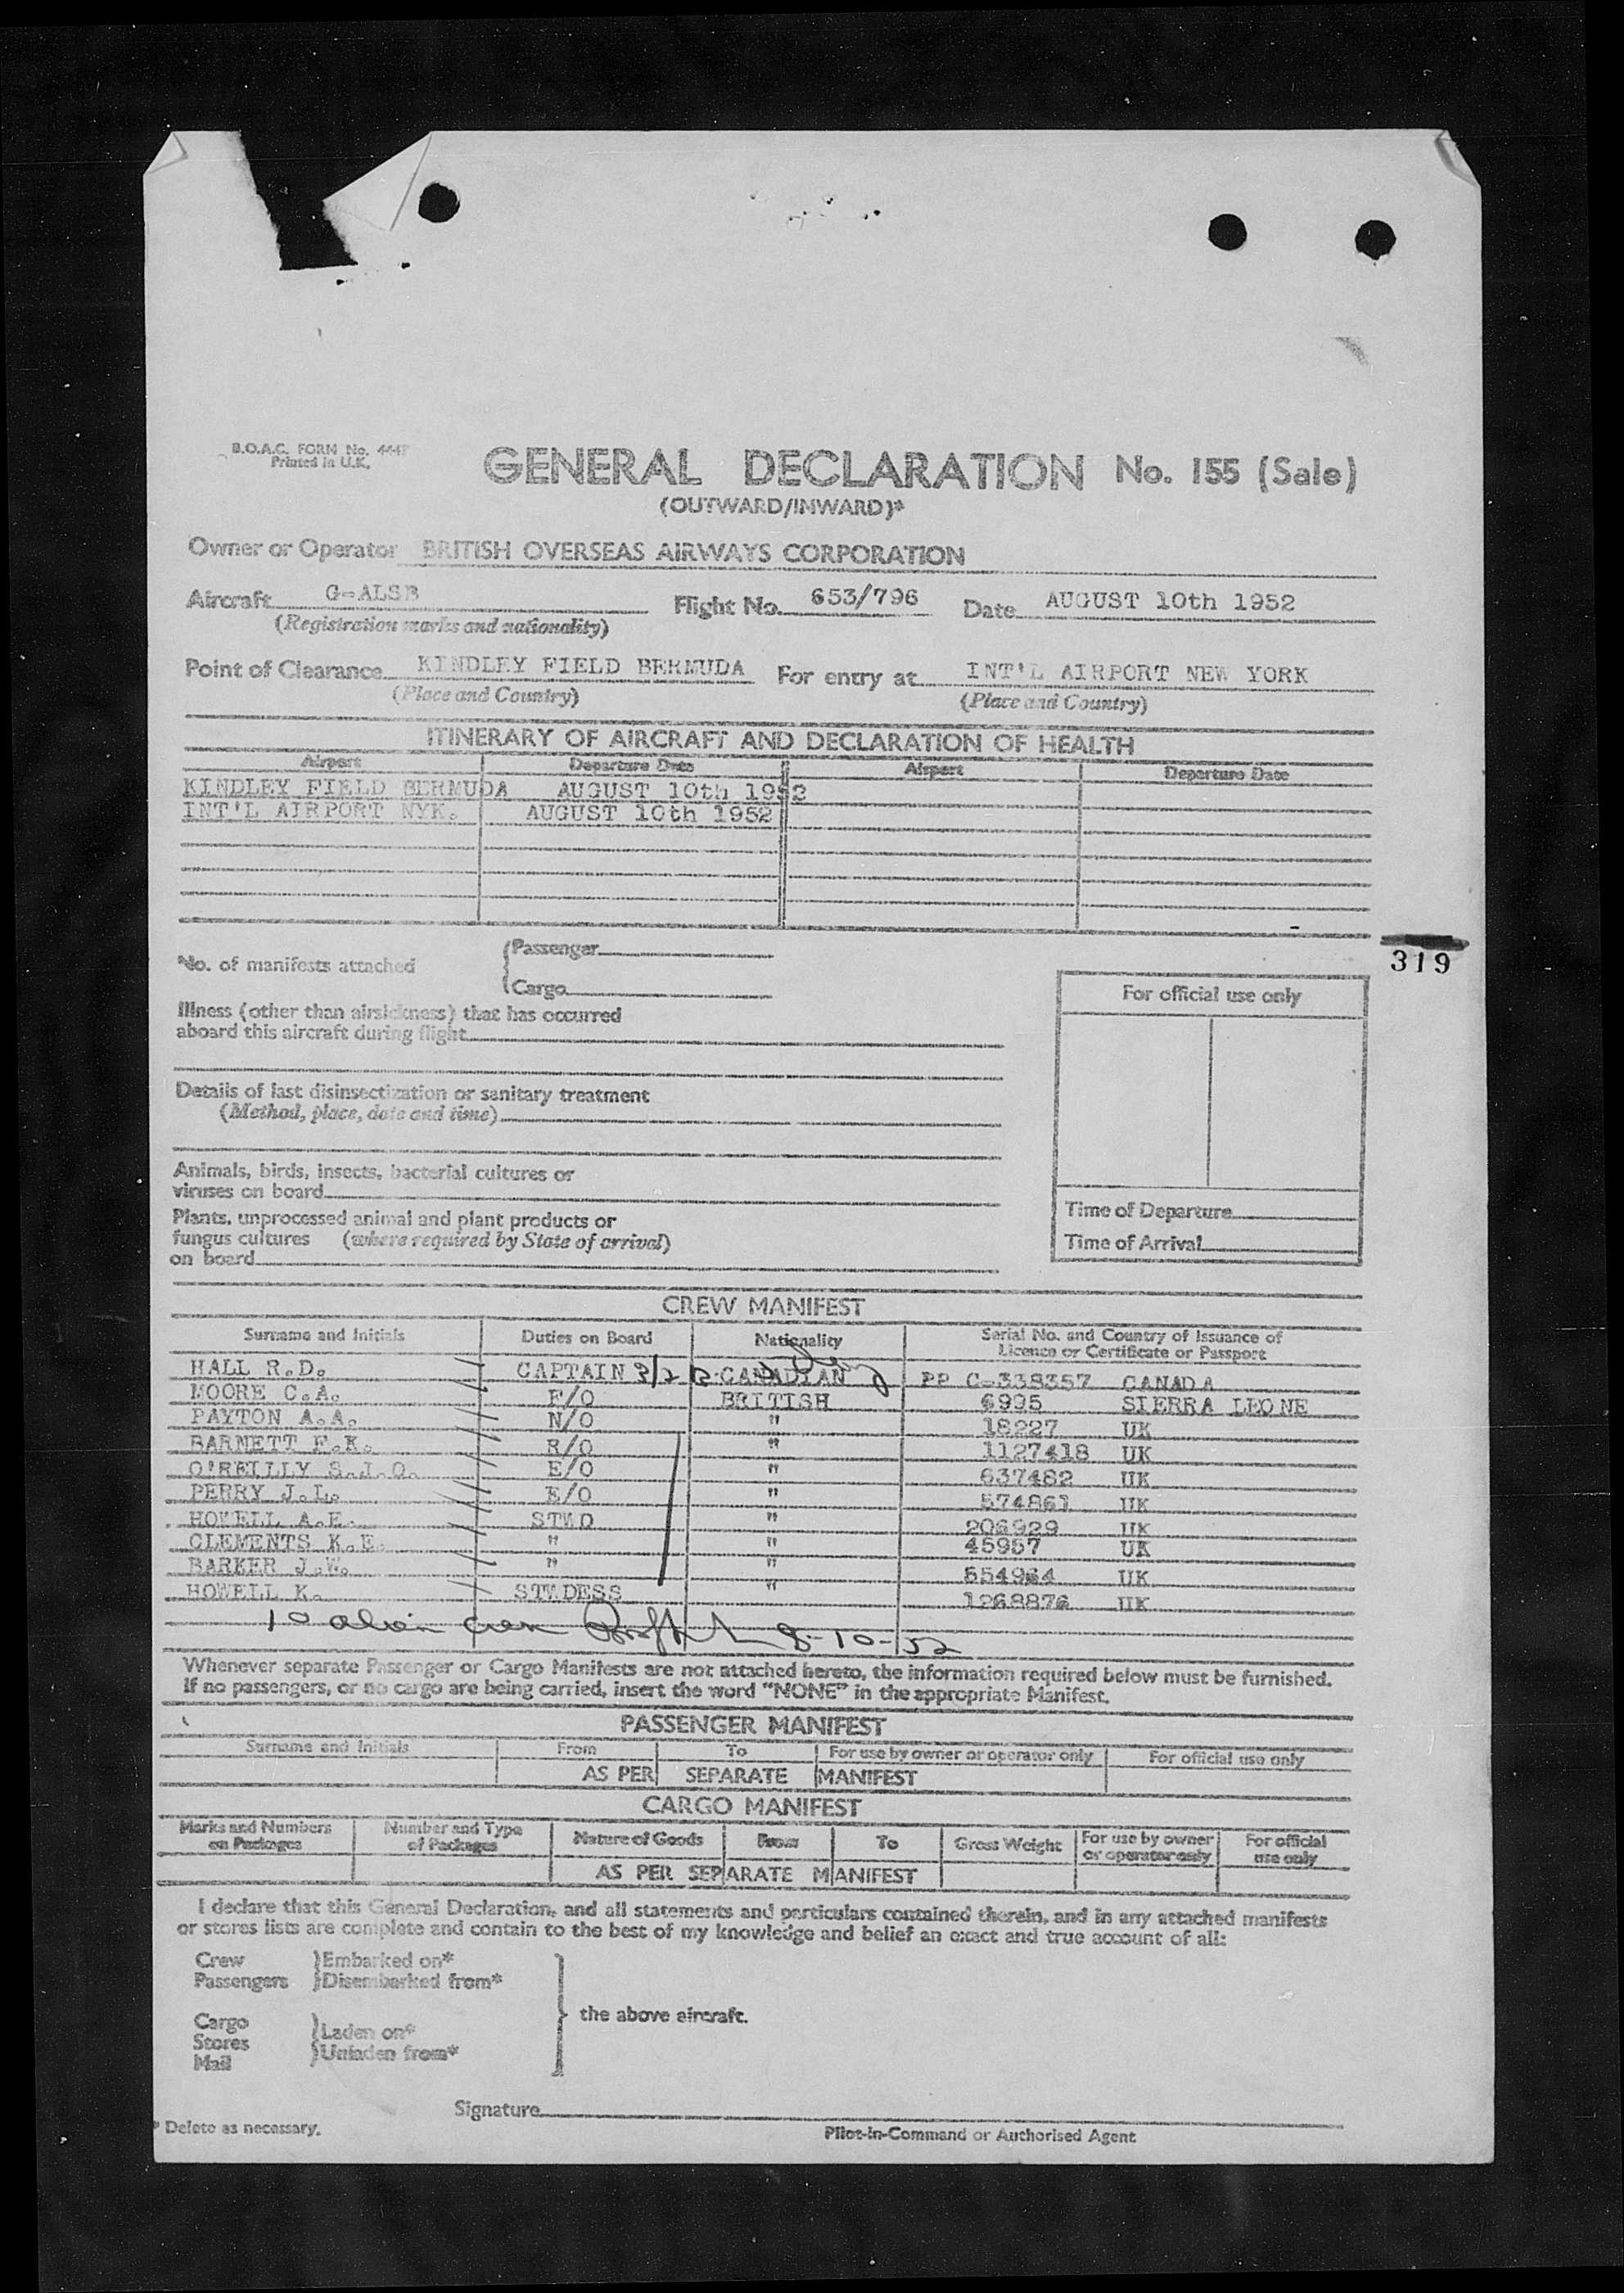 B.O.A.C. FORM No. 4447
Printed in U.K.
GENERAL DECLARATION No. 155 (Sale)
(OUTWARD/INWARD)*
Owner or Operator BRITISH OVERSEAS AIRWAYS CORPORATION
Aircraft G-ALSB Flight No. 653/796 Date AUGUST 10th 1952
(Registration marks and nationality)
Point of Clearance KINDLEY FIELD BERMUDA For entry at INT'L AIRPORT NEW YORK
(Place and Country) (Place and Country)
ITINERARY OF AIRCRAFT AND DECLARATION OF HEALTH
Airport Departure Date Airport Departure Date
KINDLEY FIELD BERMUDA AUGUST 10th 1952
INT'L AIRPORT NYK. AUGUST 10th 1952
319
No. of manifests attached Passenger
Cargo
Illness (other than airsickness) that has occurred
aboard this aircraft during flight
Details of last disinsectization or sanitary treatment
(Method, place, date and time)
Animals, birds, insects, bacterial cultures or
viruses on board
Plants, unprocessed animal and plant products or
fungus cultures (where required by State of arrival)
on board
For official use only
Time of Departure
Time of Arrival
CREW MANIFEST
Surname and Initials Duties on Board Nationality Serial No. and Country of Issuance of
Licence or Certificate or Passport
HALL R.D. CAPTAIN CANADIAN PP C-338357 CANADA
MOORE C.A. F/O BRITISH 6995 SIERRA LEONE
PAYTON A.A. N/O " 18227 UK
BARNETT F.K. R/O " 1127418 UK
O'REILLY S.J.O. E/O " 637482 UK
PERRY J.L. E/O " 574861 UK
HOWELL A.E. STWD " 206929 UK
CLEMENTS K.E. " " 45957 UK
BARKER J.W. " " 554964 UK
HOWELL K. STWDESS " 1268876 UK
10 alien crew 8-10-52
Whenever separate Passenger or Cargo Manifests are not attached hereto, the information required below must be furnished.
If no passengers, or no cargo are being carried, insert the word "NONE" in the appropriate Manifest.
PASSENGER MANIFEST
Surname and Initials From To For use by owner or operator only For official use only
AS PER SEPARATE MANIFEST
CARGO MANIFEST
Marks and Numbers on Packages Number and Type of Packages Nature of Goods From To Gross Weight For use by owner or operator only For official use only
AS PER SEPARATE MANIFEST
I declare that this General Declaration, and all statements and particulars contained therein, and in any attached manifests
or stores lists are complete and contain to the best of my knowledge and belief an exact and true account of all:
Crew Embarked on*
Passengers Disembarked from*
the above aircraft.
Cargo Laden on*
Stores Unladen from*
Mail
Signature
* Delete as necessary. Pilot-in-Command or Authorised Agent